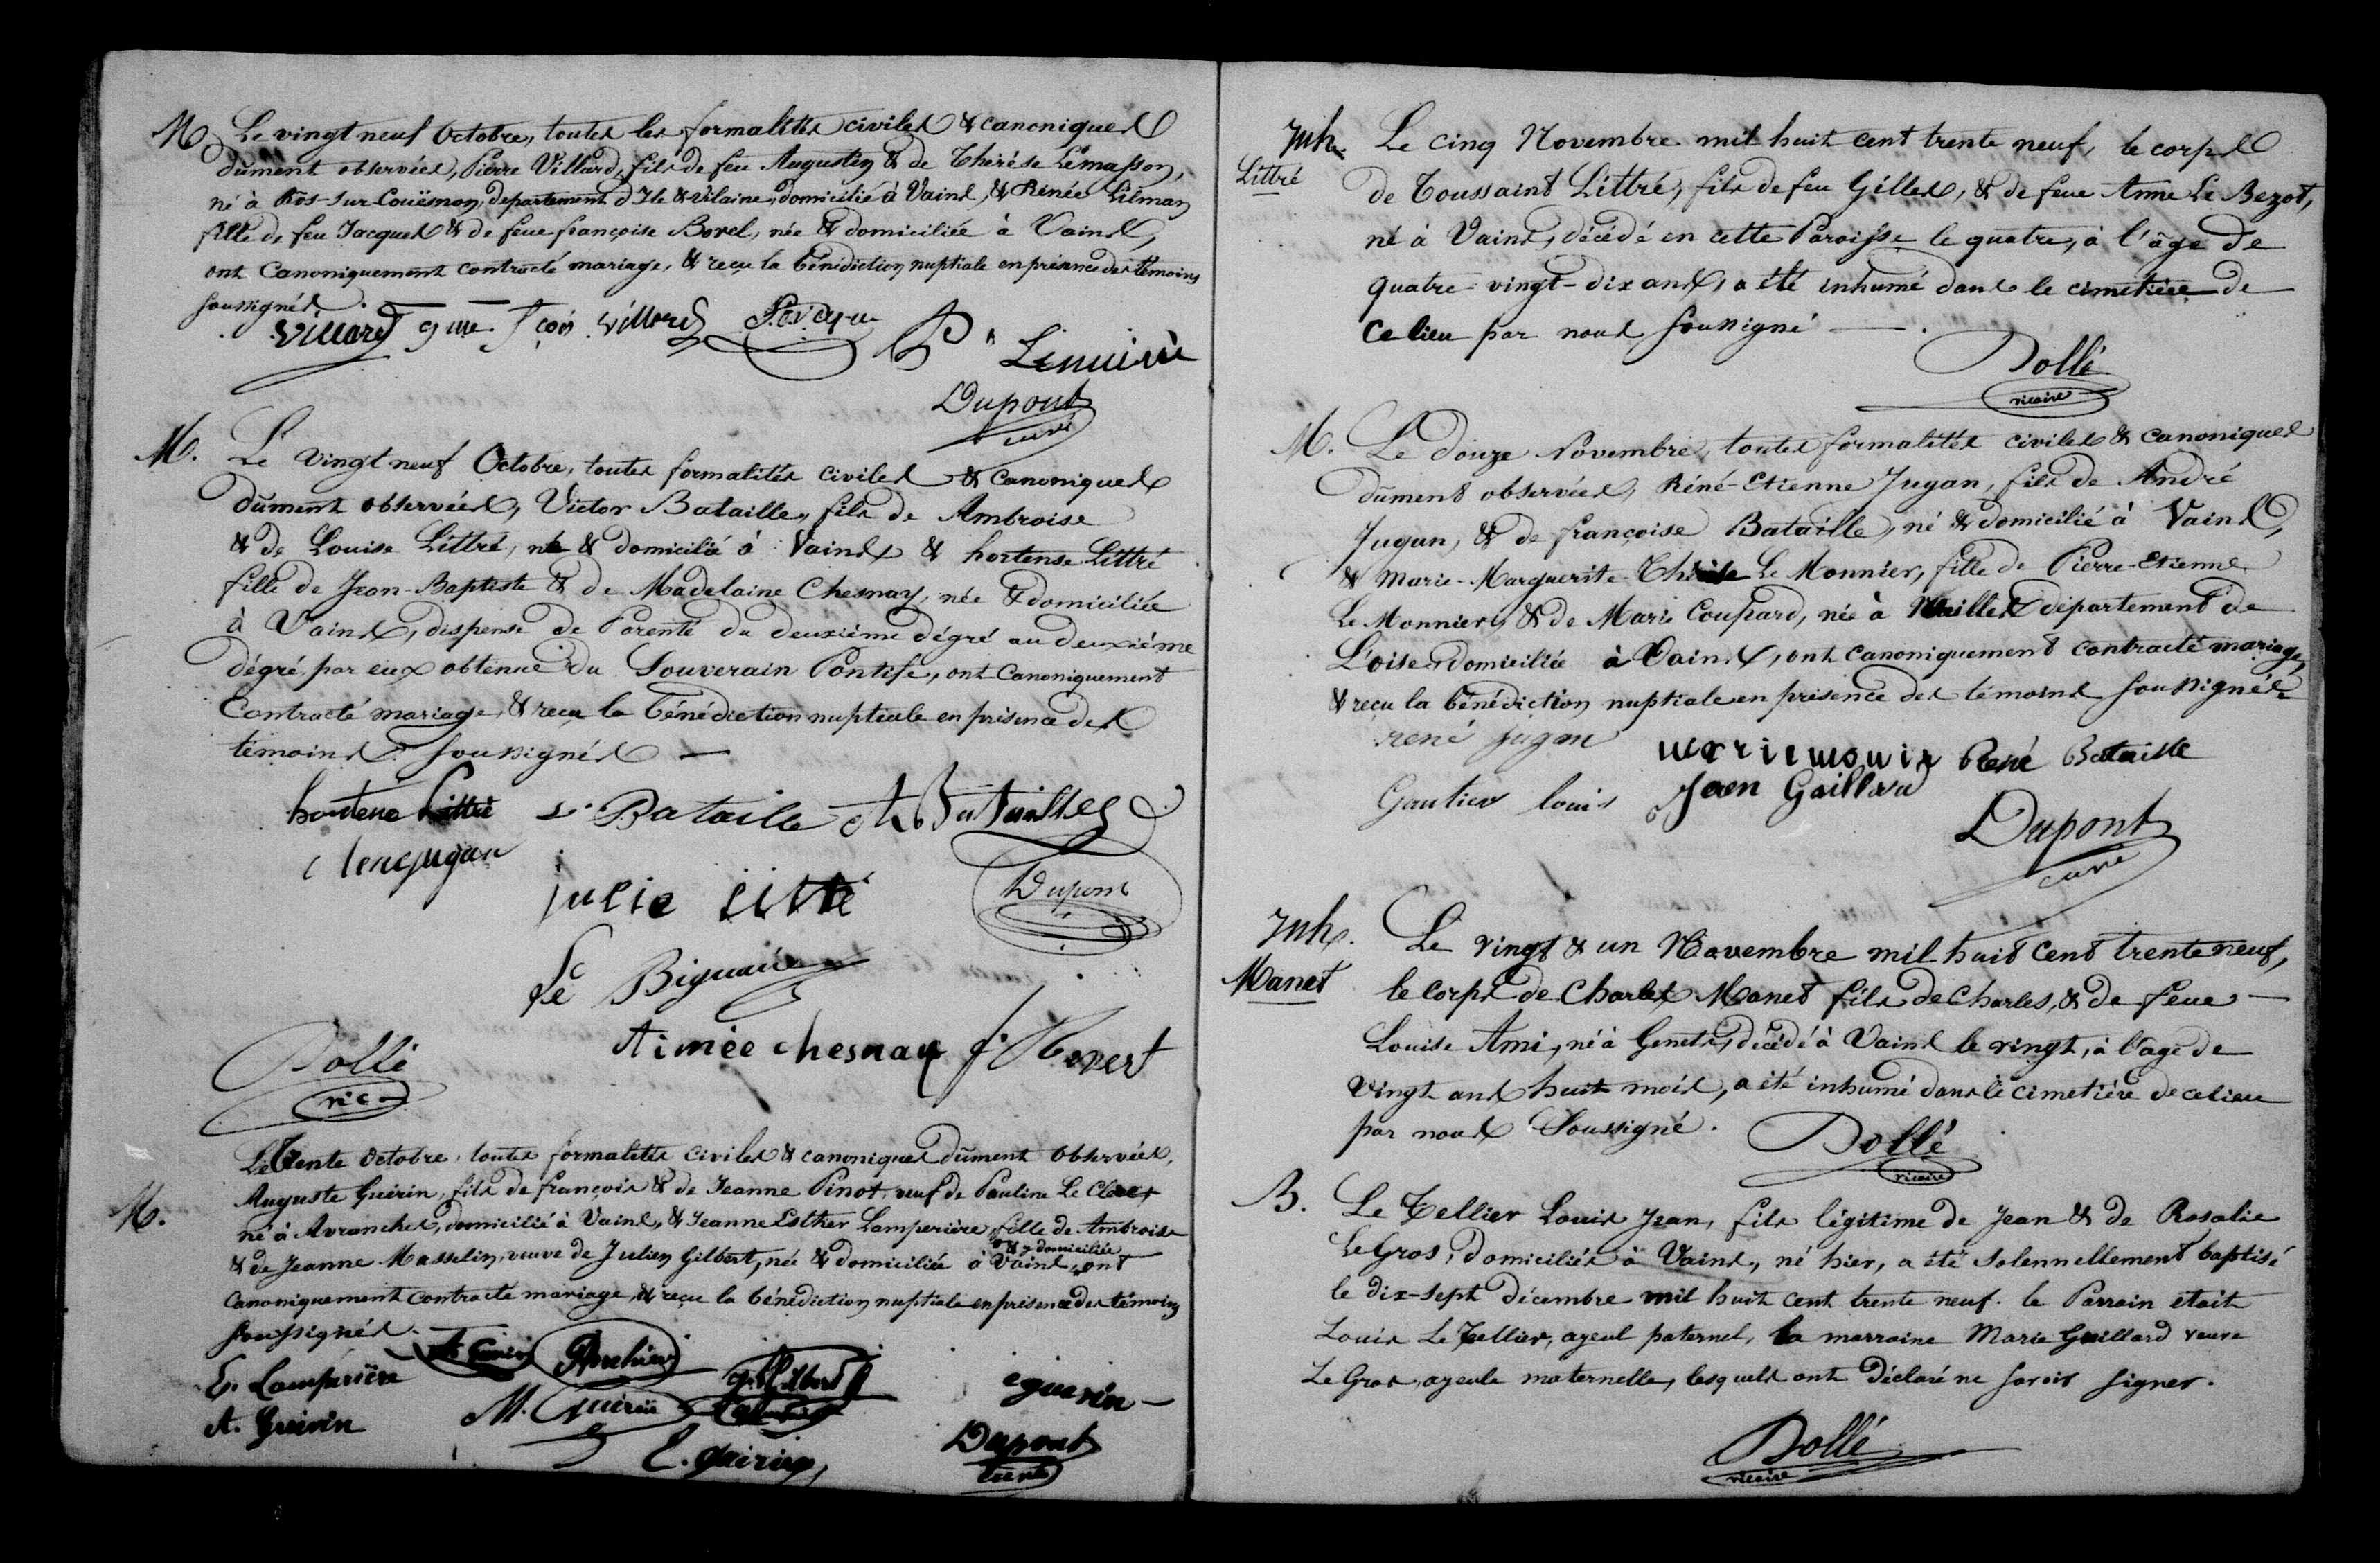 M. Le vingt neuf Octobre, toutes les formalités civiles & canoniques
dûment observées, Pierre Villard, fils de feu Augustin & de Thérèse Lemasson,
né à Ros-sur-Couësnon, departement d'Ile & Vilaine, domicilié à Vains, & Renée
fille de feu Jacques & de feue françoise Borel, née & domiciliée à Vains,
ont Canoniquement contracté mariage, & reçu la bénédiction nuptiale en présence des témoins
soussignés.
Villard villard
Dupont
curé
M. Le vingt neuf Octobre, toutes formalités civiles & canoniques
dûment observées, Victor Bataille, fils de Ambroise
& de Louise Littré, né & domicilié à Vains & hortense Littré
fille de Jean-Baptiste & de Madelaine Chesnay, née & domiciliée
à Vains, dispense de Parenté du deuxième dégré au deuxième
dégré par eux obtenue du Souverain Pontife, ont Canoniquement
Contracté mariage, & reçu la bénédiction nuptiale en présence des
témoins soussignés
hortene Littré Bataille
julie
Dupont
Le
Aimée chesnay
Dollé
vic
Le Trente Octobre, toutes formalités civiles & canoniques dûment observées,
M. Auguste Guérin, fils de françois & de Jeanne Pinot, veuf de Pauline Le Clerc
né à Avranches, domicilié à Vains, & Jeanne Esther Lamperière, fille de Ambroise
& domiciliée
& de Jeanne Masselin, veuve de Julien Gilbert, née & domiciliée à Vains, ont
Canoniquement contracté mariage, & reçu la bénédiction nuptiale en présence des témoins
soussignés.
E. Lamperière
A. Guérin M. Guérin
E. Guérin
Dupont
curé
Inh. Le cinq Novembre mil huit cent trente neuf, le corps
Littré
de Toussaint Littré, fils de feu Gilles, & de feue Anne Le Bezot,
né à Vains, décédé en cette Paroisse le quatre, à l'âge de
quatre-vingt-dix ans, a été inhumé dans le cimetière de
ce lieu par nous soussigné
Dollé
vicaire
M. Le douze Novembre, toutes formalités civiles & canoniques
dûment observées, Réné-Etienne Jugan, fils de André
Jugan, & de françoise Bataille, né & domicilié à Vains,
& Marie-Marguerite-Thérèse Le Monnier, fille de Pierre-Etienne
Le Monnier, & de Marie Coupard, née à Noailles département de
L'oise, domiciliée à Vains, ont canoniquement contracté mariage,
& reçu la bénédiction nuptiale en présence des témoins soussignés
rené jugan René Bataille
Gautier louis Jean Gaillard
Dupont
curé
Inh. Le vingt & un Novembre mil huit cent trente neuf,
Manet
le corps de Charles Manet fils de Charles, & de feue
Louise Ami, né à Genets, décédé à Vains le vingt, à l'age de
vingt ans huit mois, a été inhumé dans le cimetière de ce lieu
par nous Soussigné.
Dollé
vicaire
B. Le Tellier Louis Jean, fils légitime de Jean & de Rosalie
Le Gros, domiciliés à Vains, né hier, a été solennellement baptisé
le dix-sept décembre mil huit cent trente neuf. le Parrain était
Louis Le Tellier, ayeul paternel, la marraine Marie Guillard veuve
Le Gros, ayeule maternelle, lesquels ont déclaré ne savoir signer.
Dollé
vicaire